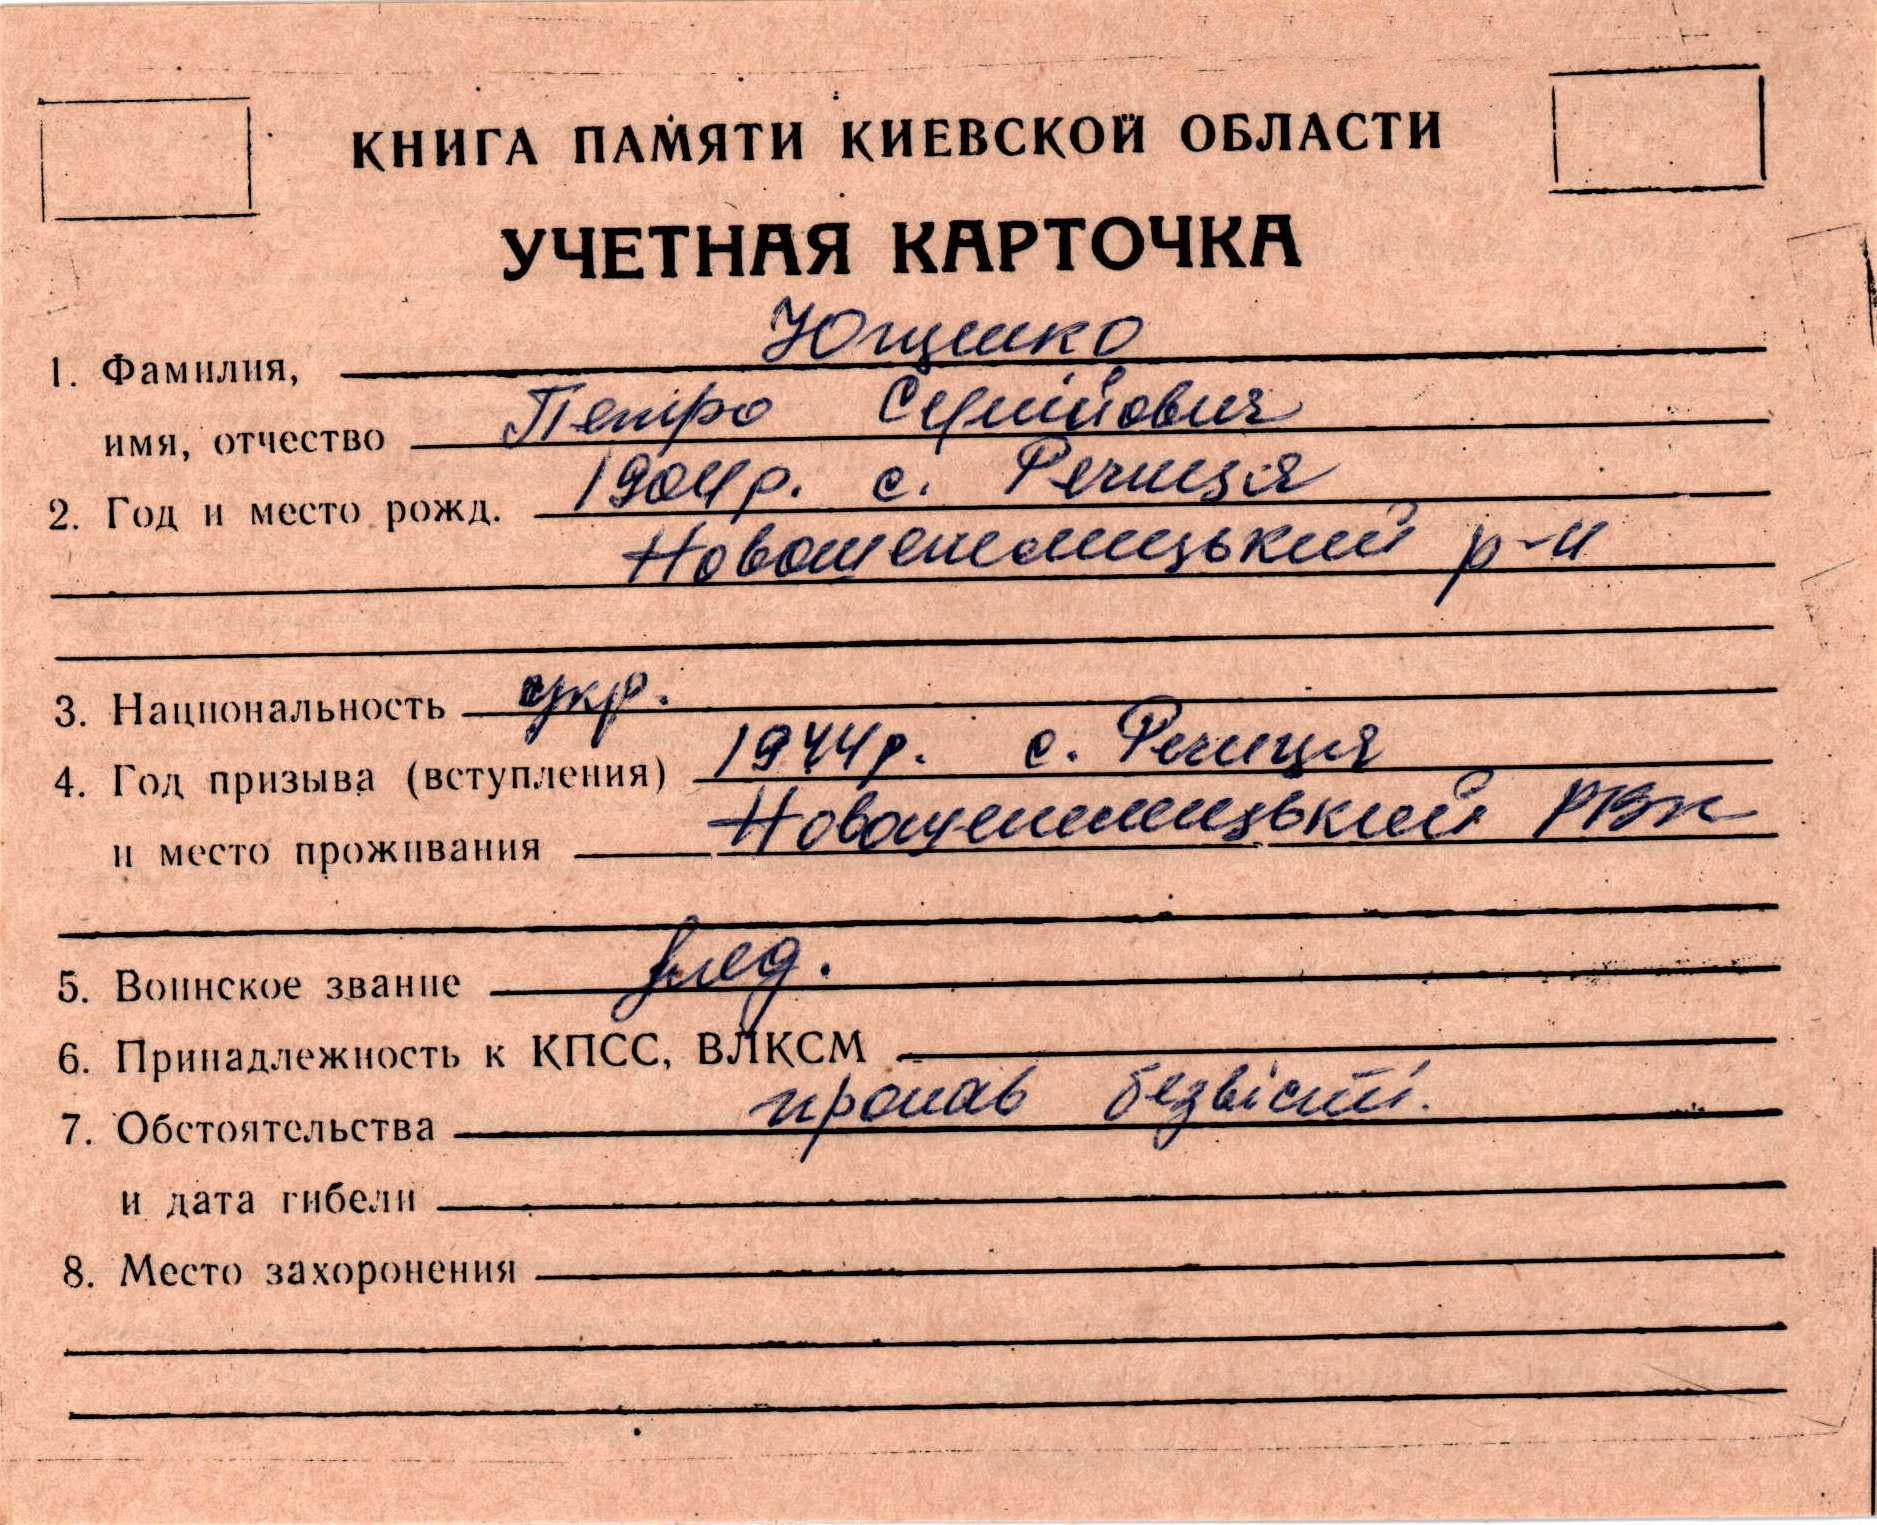 КНИГА ПАМЯТИ КИЕВСКОЙ ОБЛАСТИ
УЧЕТНАЯ КАРТОЧКА
1. Фамилия, Ющенко
имя, отчество Петро Сергійович
2. Год и место рожд. 1904р. с. Речиця
Новошепелицький р-н
3. Национальность укр.
4. Год призыва (вступления) 1944р. с. Речиця
и место проживания Новошепелицький РВК
5. Воинское звание
6. Принадлежность к КПСС, ВЛКСМ
7. Обстоятельства пропав безвісті.
и дата гибели
8. Место захоронения